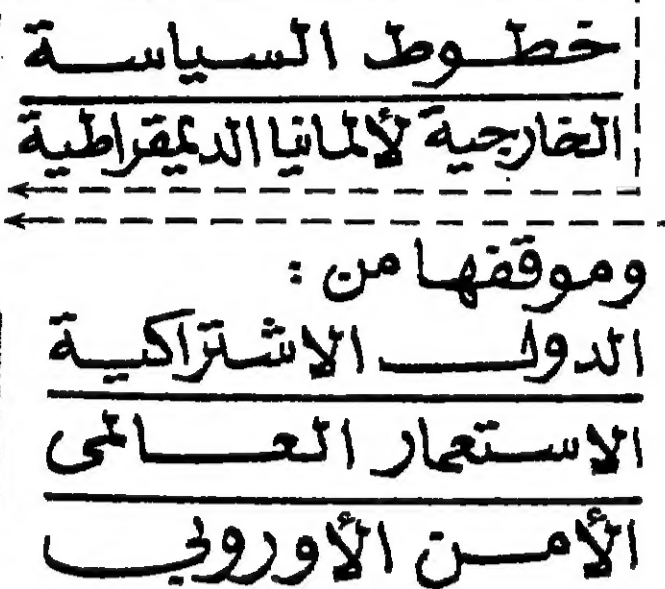 خطوط السياسة
الخارجية لألمانيا الديمقراطية
وموقفها من :
الدول الاشتراكية
الاستعمار العالمى
الأمن الأوروبي